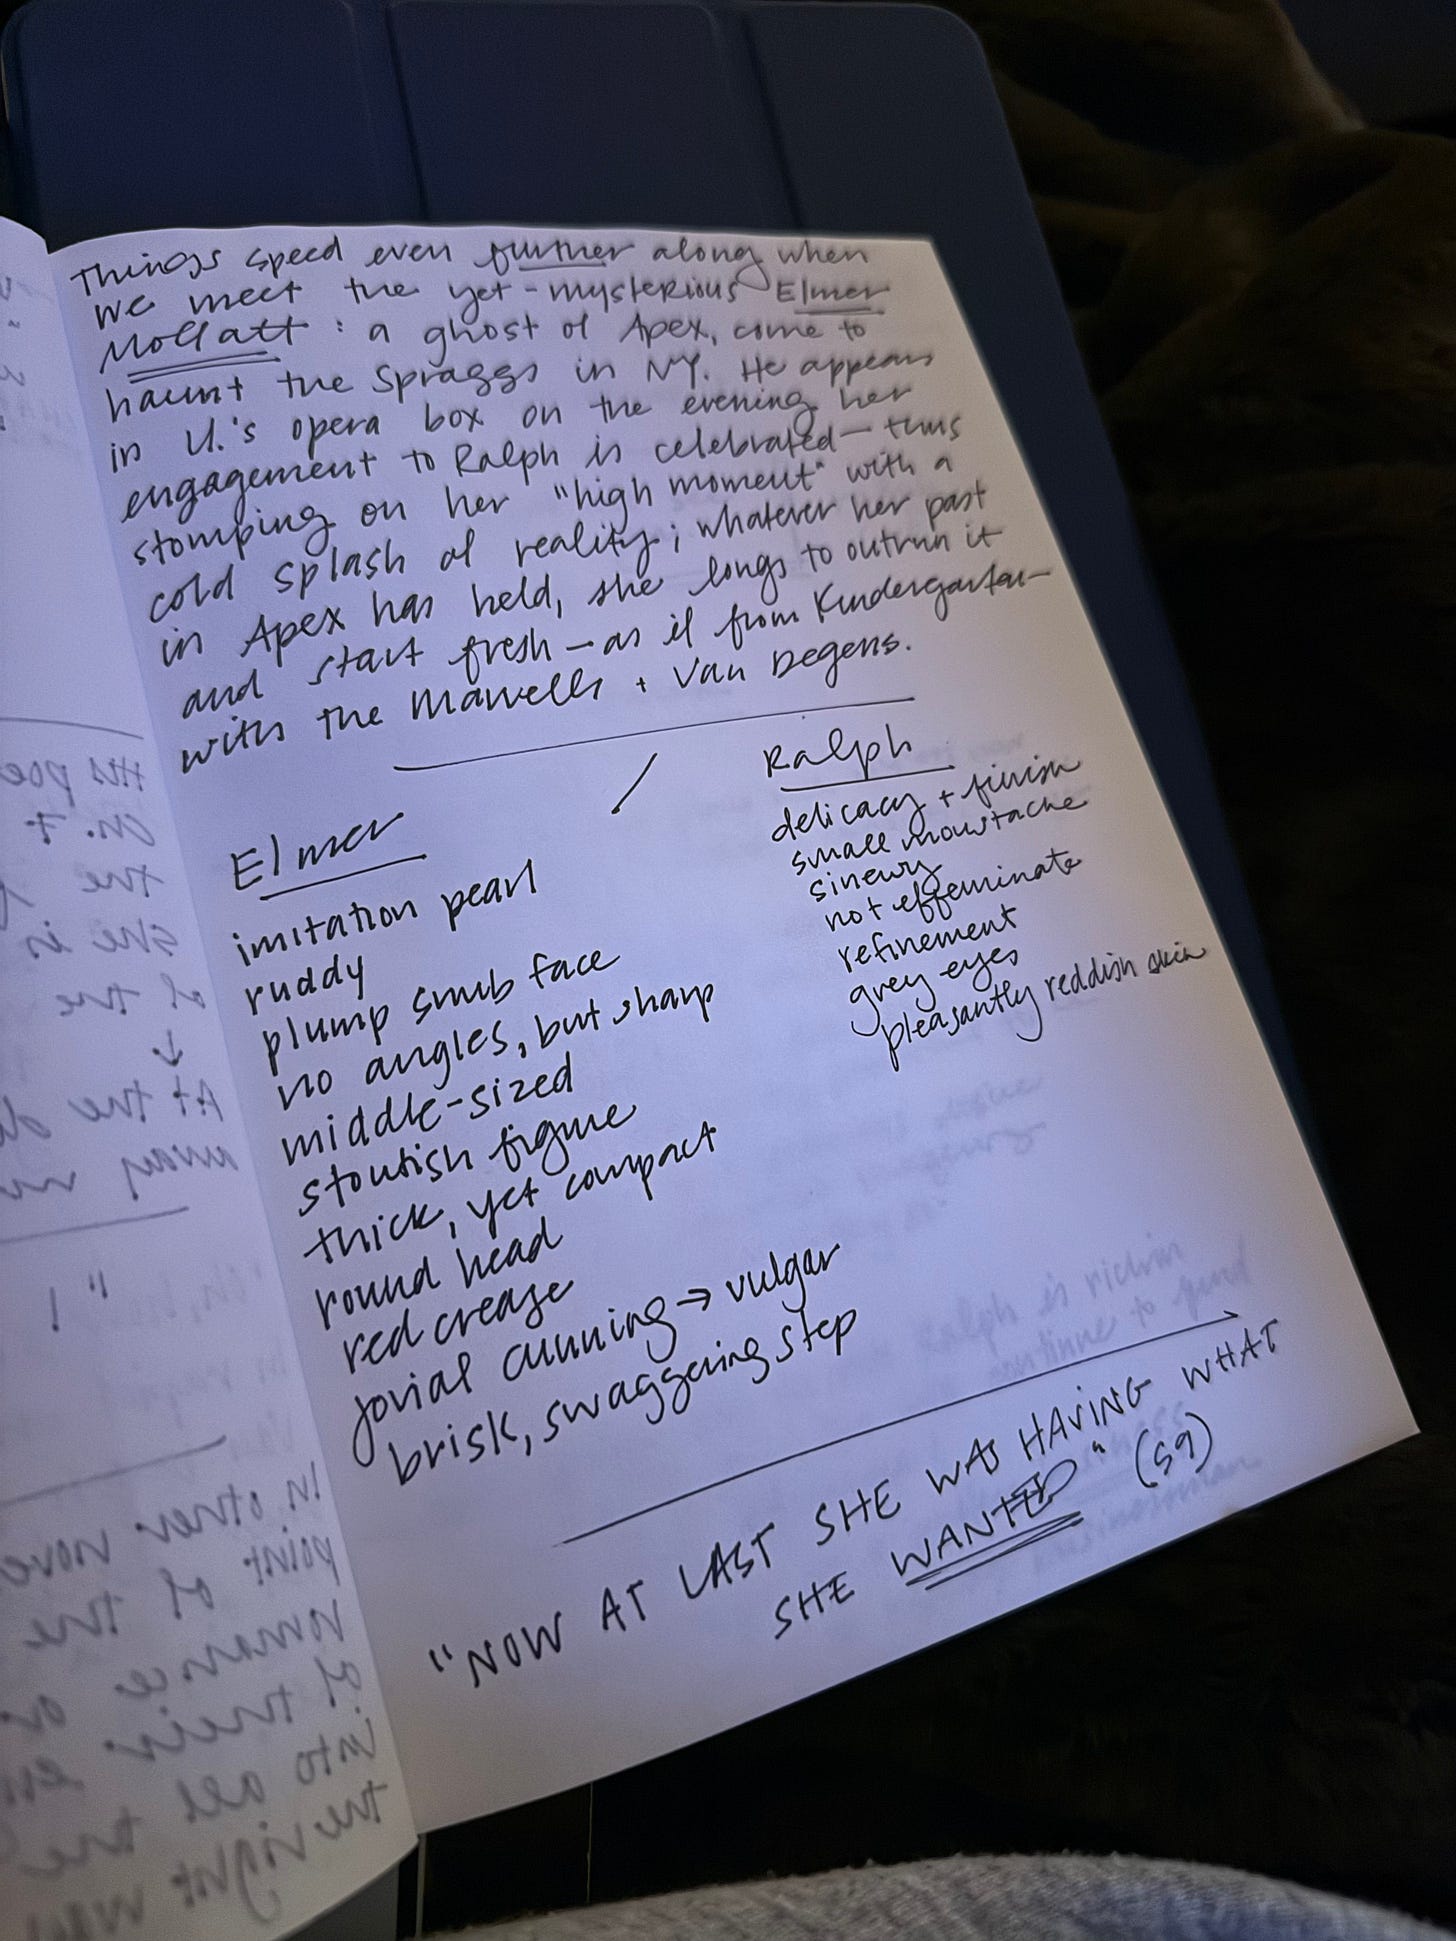 Things speed even further along when
we meet the yet-mysterious Elmer
Moffatt: a ghost of Apex, come to
haunt the Spraggs in NY. He appears
in U.'s opera box on the evening her
engagement to Ralph is celebrated — thus
stomping on her "high moment" with a
cold splash of reality; whatever her past
in Apex has held, she longs to outrun it
and start fresh — as if from Kindergarten —
with the Marvells + Van Degens.
Elmer / Ralph
imitation pearl
ruddy
plump snub face
no angles, but sharp
middle-sized
stoutish figure
thick, yet compact
round head
red crease
jovial cunning → vulgar
brisk, swaggering step
delicacy + finish
small moustache
sinewy
not effeminate
refinement
grey eyes
pleasantly reddish skin
"NOW AT LAST SHE WAS HAVING WHAT
SHE WANTED" (59)